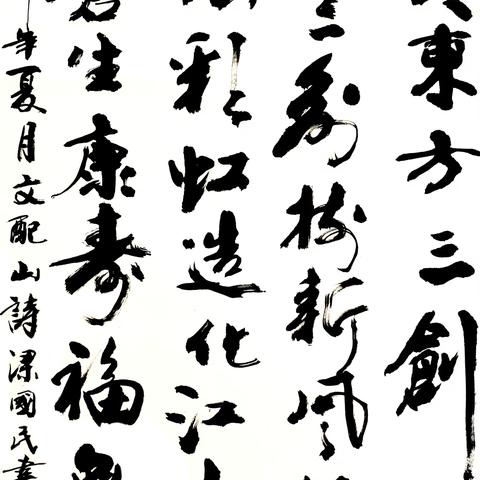 東方三創
樹新風
彩虹造化江
生康寿福
年夏月文配山詩梁國民書